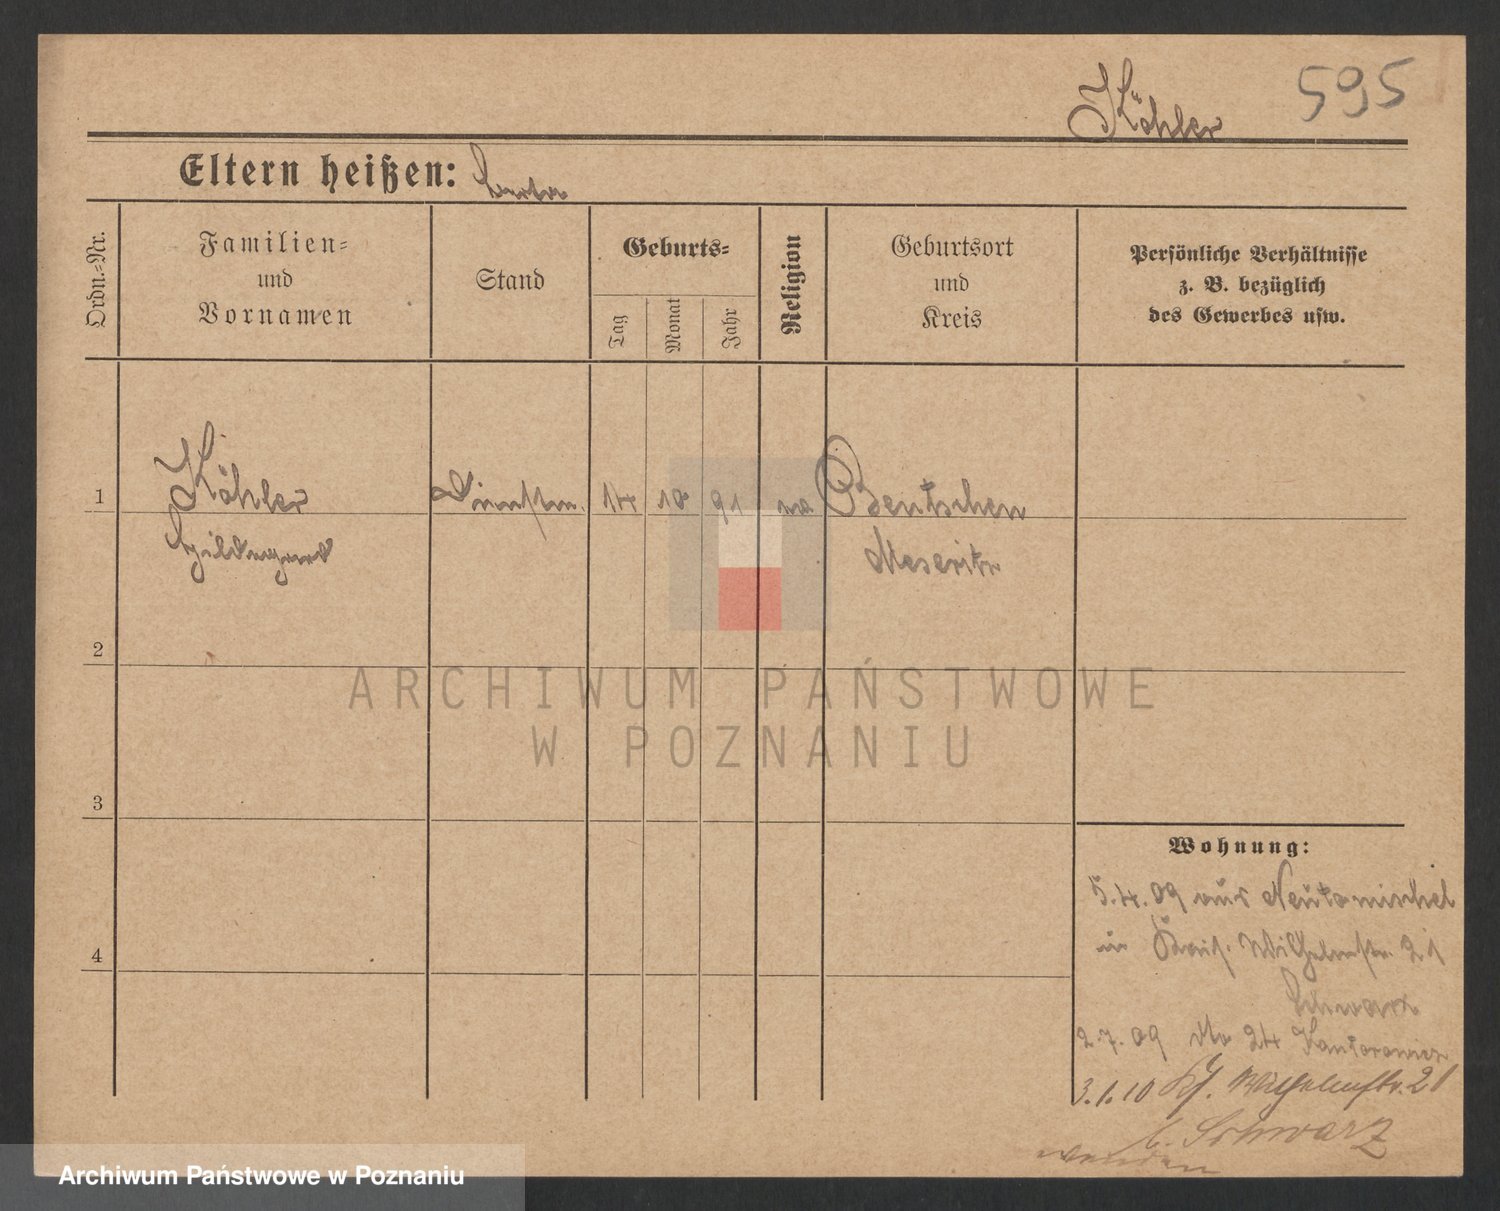 595
Köhler
Eltern heißen: Berta
Ordn.-Nr.
Familien-
und
Vornamen
Stand
Geburts-
Tag
Monat
Jahr
Religion
Geburtsort
und
Kreis
Persönliche Verhältnisse
z. B. bezüglich
des Gewerbes usw.
1
Köhler
Hildegard
Dienstm.
14
10
91
Bentschen
Meseritz
2
3
4
Wohnung:
5.4.09 aus Neutomischel
in Wilhelmstr. 21
Schwarz
2.7.09 24 Kantorowicz
3.1.10 Wilhelmstr. 21
b. Schwarz
wenden
ARCHIWUM PAŃSTWOWE
W POZNANIU
Archiwum Państwowe w Poznaniu